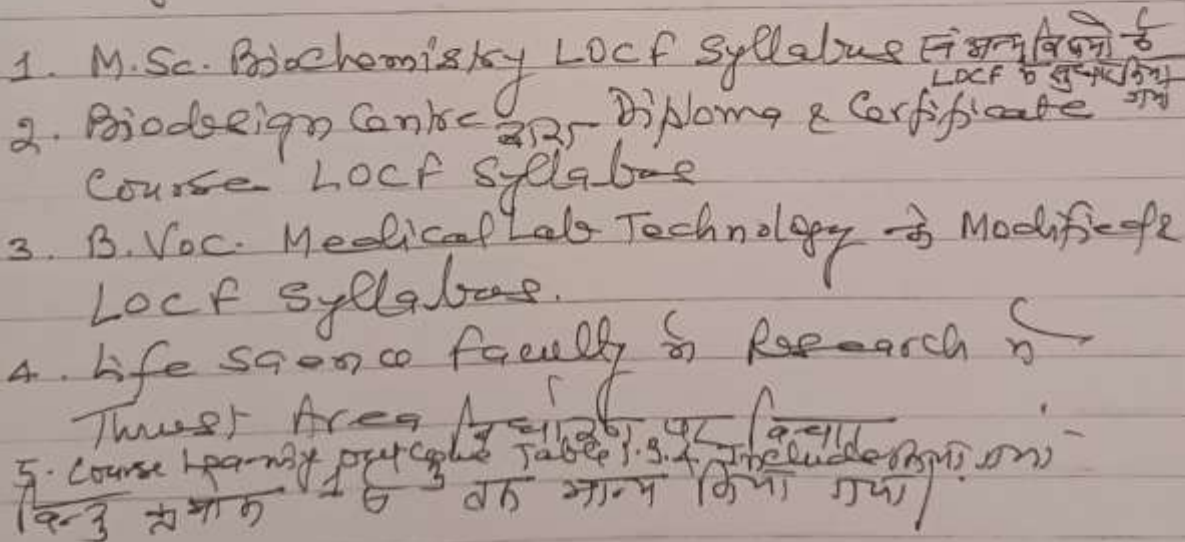 1. M.Sc. Biochemistry LOCF Syllabus एवं अन्य विषयों के
LOCF के किया गया
2. Biodesign Centre द्वारा Diploma & Certificate
Course LOCF Syllabus
3. B.Voc. Medical Lab Technology के
LOCF Syllabus.
4. Life Science faculty में Research के
Thrust Area पर विचार
5. Course Learning Table Include किया गया
बिन्दु क्रमांक 1 तक मान्य किया गया।